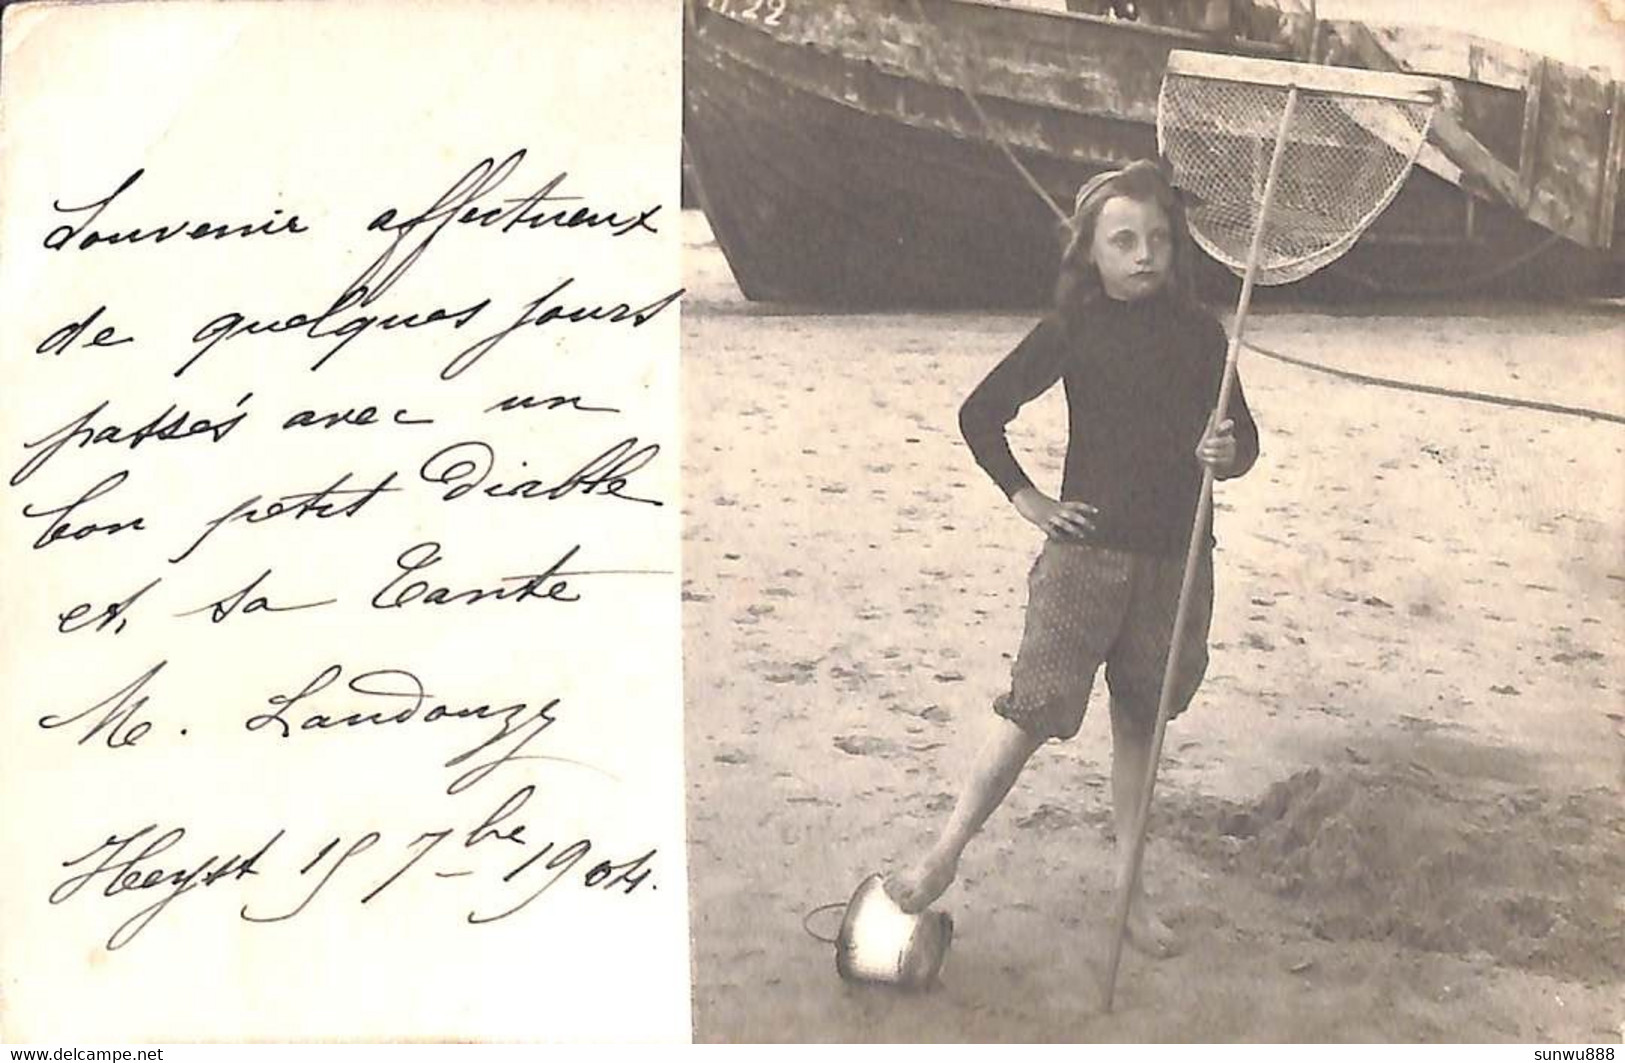 Souvenir affectueux
de quelques jours
passés avec un
bon petit Diable
et sa Tante
M. Landouzy
Heyst 15 7bre 1904.
H.22
www.delcampe.net
sunwu888